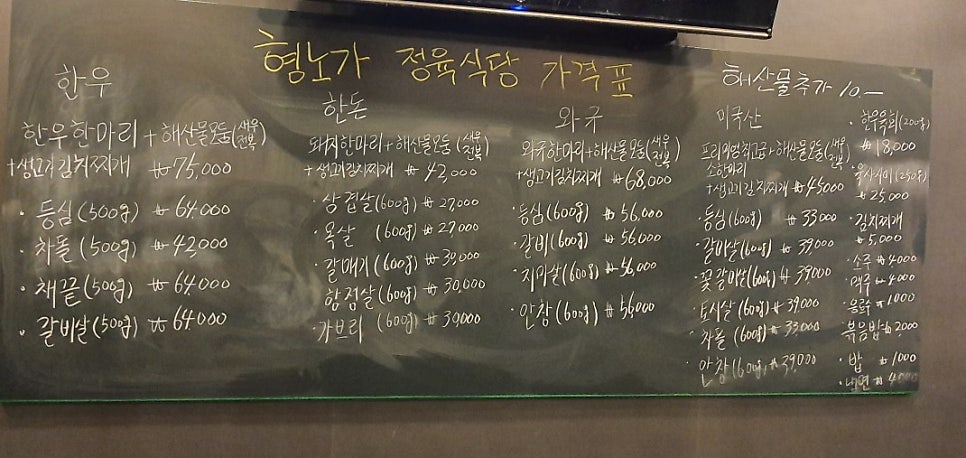 형노가 정육식당 가격표
해산물추가 10,-
한우
한우한마리+해산물모둠(새우 전복)
+생고기김치찌개 ₩75,000
· 등심(500g) ₩64,000
· 차플(500g) ₩42,000
· 채끝(500g) ₩64,000
· 갈비살(500g) ₩64000
한돈
돼지한마리+해산물모듬(새우 전복)
+생고기김치찌개 ₩42,000
· 삼겹살(600g) ₩27,000
· 목살 (600g) ₩27000
· 갈매기(600g) ₩30,000
항정살(600g) ₩30,000
가브리 (600g) ₩30,000
와규
와규한마리+해산물모듬(새우 전복)
+생고기김치찌개 ₩68,000
· 등심(600g) ₩56,000
· 갈비(600g) ₩56,000
· 치마살(600g) ₩56,000
· 안창(600g) ₩56,000
미국산
소한마리
+생고기김치찌개 ₩45000
· 등심(600g) ₩33000
· 갈비살(600g) ₩39,000
· 꽃갈매살(600g) ₩39000
· 토시살(600g) ₩39000
· 차플(600g) ₩33,000
· 안창(600g) ₩39,000
· 한우육회(200g)
₩18,000
· 육사시미(250g)
₩25,000
· 김치찌개
₩5,000
· 소주 ₩4000
· 맥주 ₩4000
· 음료 ₩1000
볶음밥 ₩2000
· 밥 ₩1000
· 냉면 ₩4000